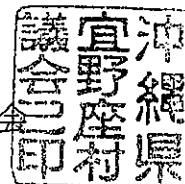 沖繩県
宜野座村
議会之印
会